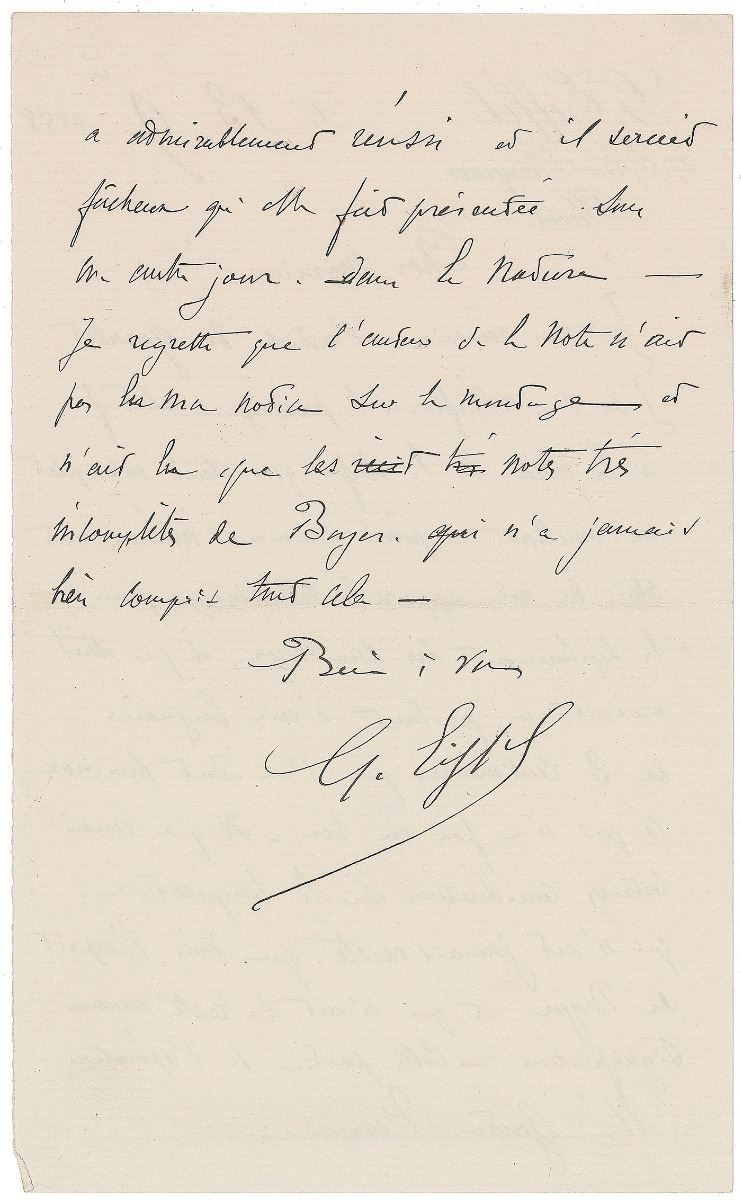 a admirablement réussi et il serait
fâcheux qu'elle fut présentée sous
un autre jour. dans la Nature —
Je regrette que l'auteur de la Note n'ait
pas lu ma notice sur le montage et
n'ait lu que les notes très
incomplètes de Boyer. qui n'a jamais
bien compris tout cela —
Bien à vous
G. Eiffel